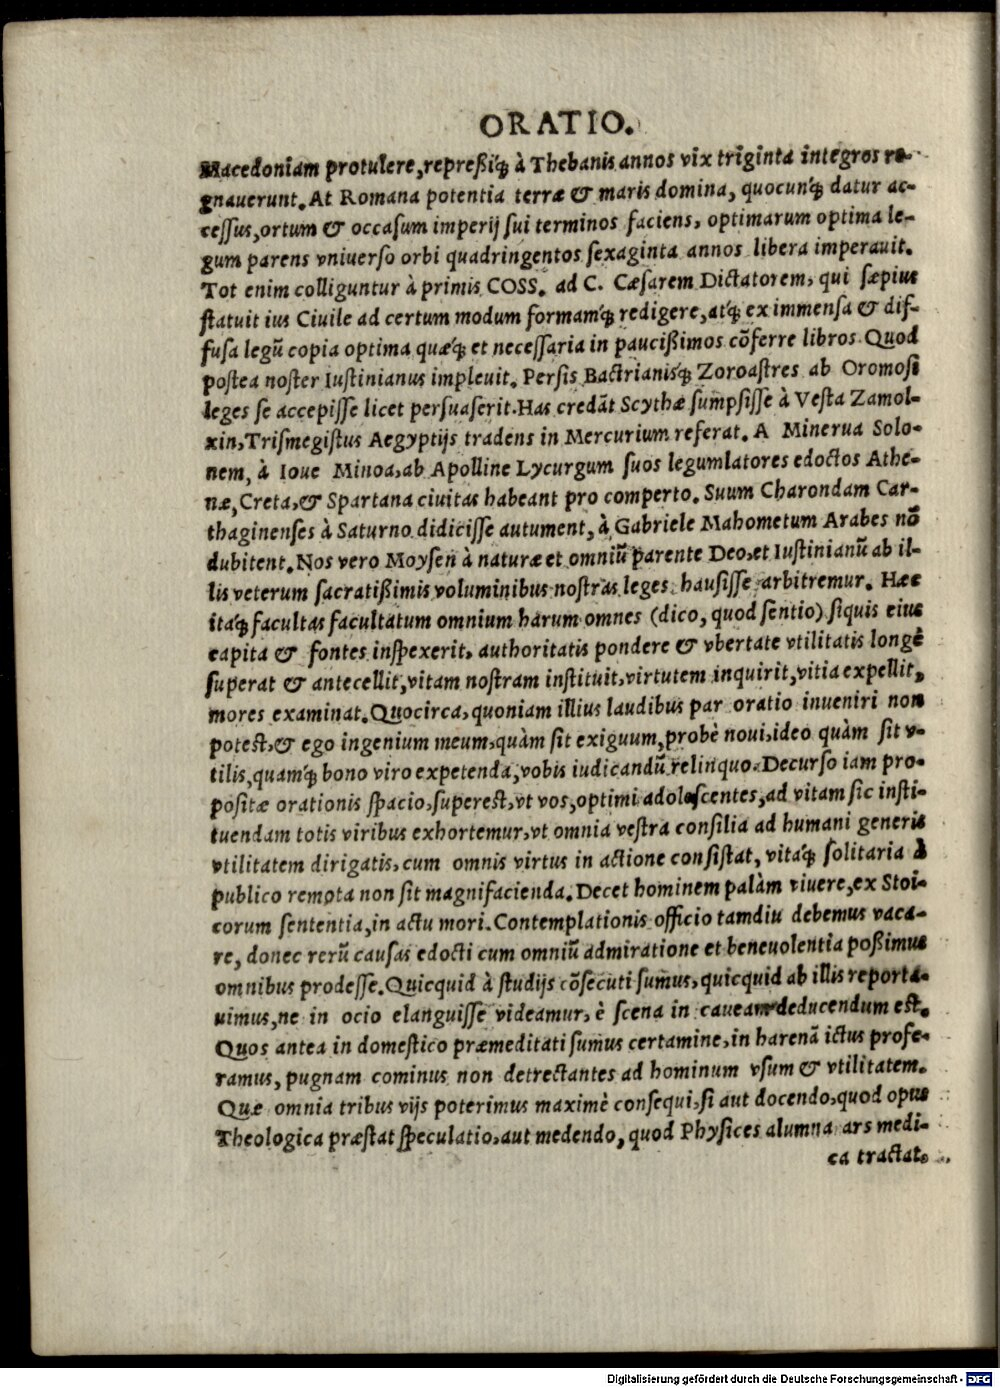 ORATIO.
Macedoniam protulere, repreßiq́ꝫ à Thebanis annos vix triginta integros re-
gnauerunt. At Romana potentia terræ & maris domina, quocunq́ꝫ datur ac-
cessus, ortum & occasum imperij sui terminos faciens, optimarum optima le-
gum parens vniuerso orbi quadringentos sexaginta annos libera imperauit.
Tot enim colliguntur à primis COSS. ad C. Cæsarem Dictatorem, qui sæpius
statuit ius Ciuile ad certum modum formamq́ꝫ redigere, atq́ꝫ ex immensa & dif-
fusa legũ copia optima quæq́ꝫ et necessaria in paucißimos cõferre libros. Quod
postea noster Iustinianus impleuit. Persis Bactrianisq́ꝫ Zoroastres ab Oromosi
leges se accepisse licet persuaserit. Has credãt Scythæ sumpsisse à Vesta Zamol-
xin, Trismegistus Aegyptijs tradens in Mercurium referat. A Minerua Solo-
nem, à Ioue Minoa, ab Apolline Lycurgum suos legumlatores edoctos Athe-
næ, Creta, & Spartana ciuitas habeant pro comperto. Suum Charondam Car-
thaginenses à Saturno didicisse autument, à Gabriele Mahometum Arabes nõ
dubitent. Nos vero Moysen à naturæ et omniũ parente Deo, et Iustinianũ ab il-
lis veterum sacratißimis voluminibus nostras leges hausisse arbitremur. Hæc
itaq́ꝫ facultas facultatum omnium harum omnes (dico, quod sentio) siquis eius
capita & fontes inspexerit, authoritatis pondere & vbertate vtilitatis longè
superat & antecellit, vitam nostram instituit, virtutem inquirit, vitia expellit,
mores examinat. Quocirca, quoniam illius laudibus par oratio inueniri non
potest, & ego ingenium meum, quàm sit exiguum, probè noui, ideo quàm sit v-
tilis, quamq́ꝫ bono viro expetenda, vobis iudicandũ relinquo. Decurso iam pro-
positæ orationis spacio, superest, vt vos, optimi adolescentes, ad vitam sic insti-
tuendam totis viribus exhortemur, vt omnia vestra consilia ad humani generis
vtilitatem dirigatis, cum omnis virtus in actione consistat, vitaq́ꝫ solitaria à
publico remota non sit magnifacienda. Decet hominem palàm viuere, ex Stoi-
corum sententia, in actu mori. Contemplationis officio tamdiu debemus vaca-
re, donec rerũ causas edocti cum omniũ admiratione et beneuolentia poßimus
omnibus prodesse. Quicquid à studijs cõsecuti sumus, quicquid ab illis reporta-
uimus, ne in ocio elanguisse videamur, è scena in caueam deducendum est.
Quos antea in domestico præmeditati sumus certamine, in harenã ictus profe-
ramus, pugnam cominus non detrectantes ad hominum vsum & vtilitatem.
Quæ omnia tribus vijs poterimus maximè consequi, si aut docendo, quod opus
Theologica præstat speculatio, aut medendo, quod Physices alumna ars medi-
ca tractat.
Digitalisierung gefördert durch die Deutsche Forschungsgemeinschaft - DFG